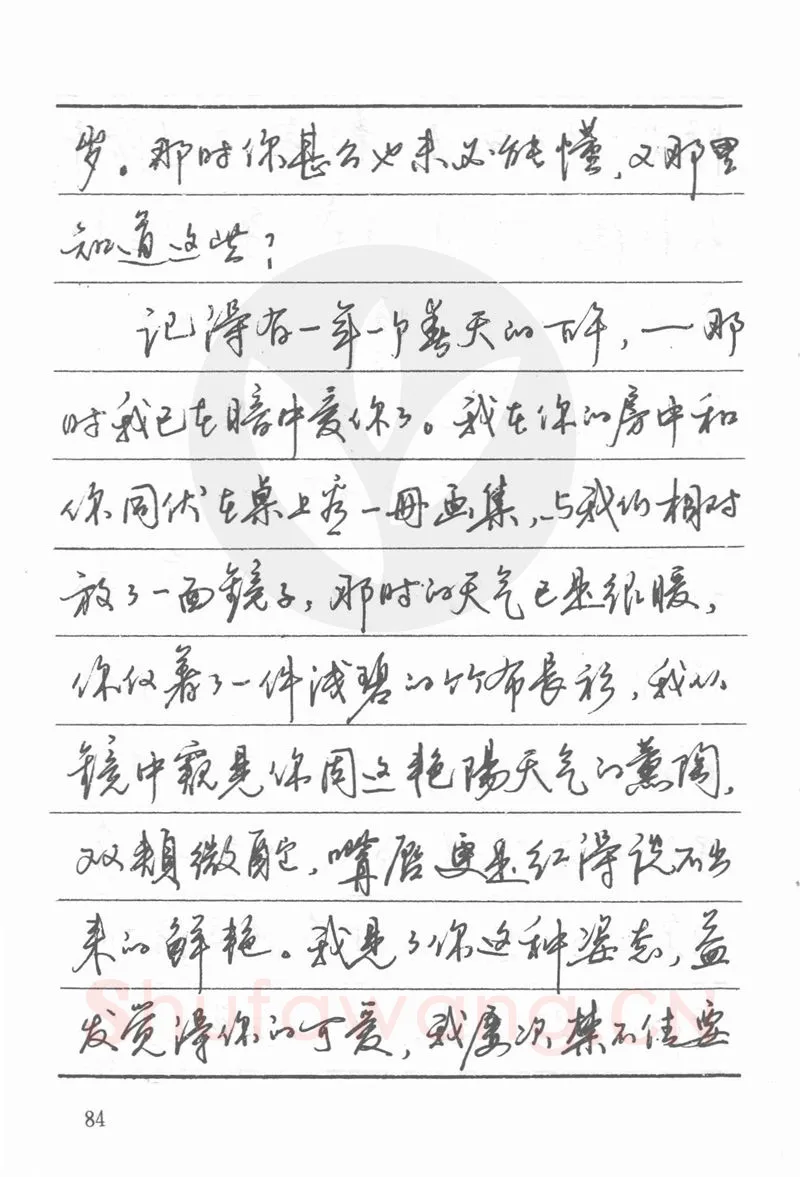 岁。那时你甚么也未必能懂，又那里
知道这些？
记得有一年一个春天的下午，——那
时我已在暗中爱你了。我在你的房中和
你同伏在桌上看一册画集，与我们相对
放了一面镜子，那时的天气已是很暖，
你仅着了一件浅碧的竹布长衫，我从
镜中窥见你因这艳陽天气的薰陶，
双颊微酡，嘴唇更是红得说不出
来的鲜艳。我见了你这种姿态，益
发觉得你的可爱，我屡次禁不住要
Shufawang.CN
84